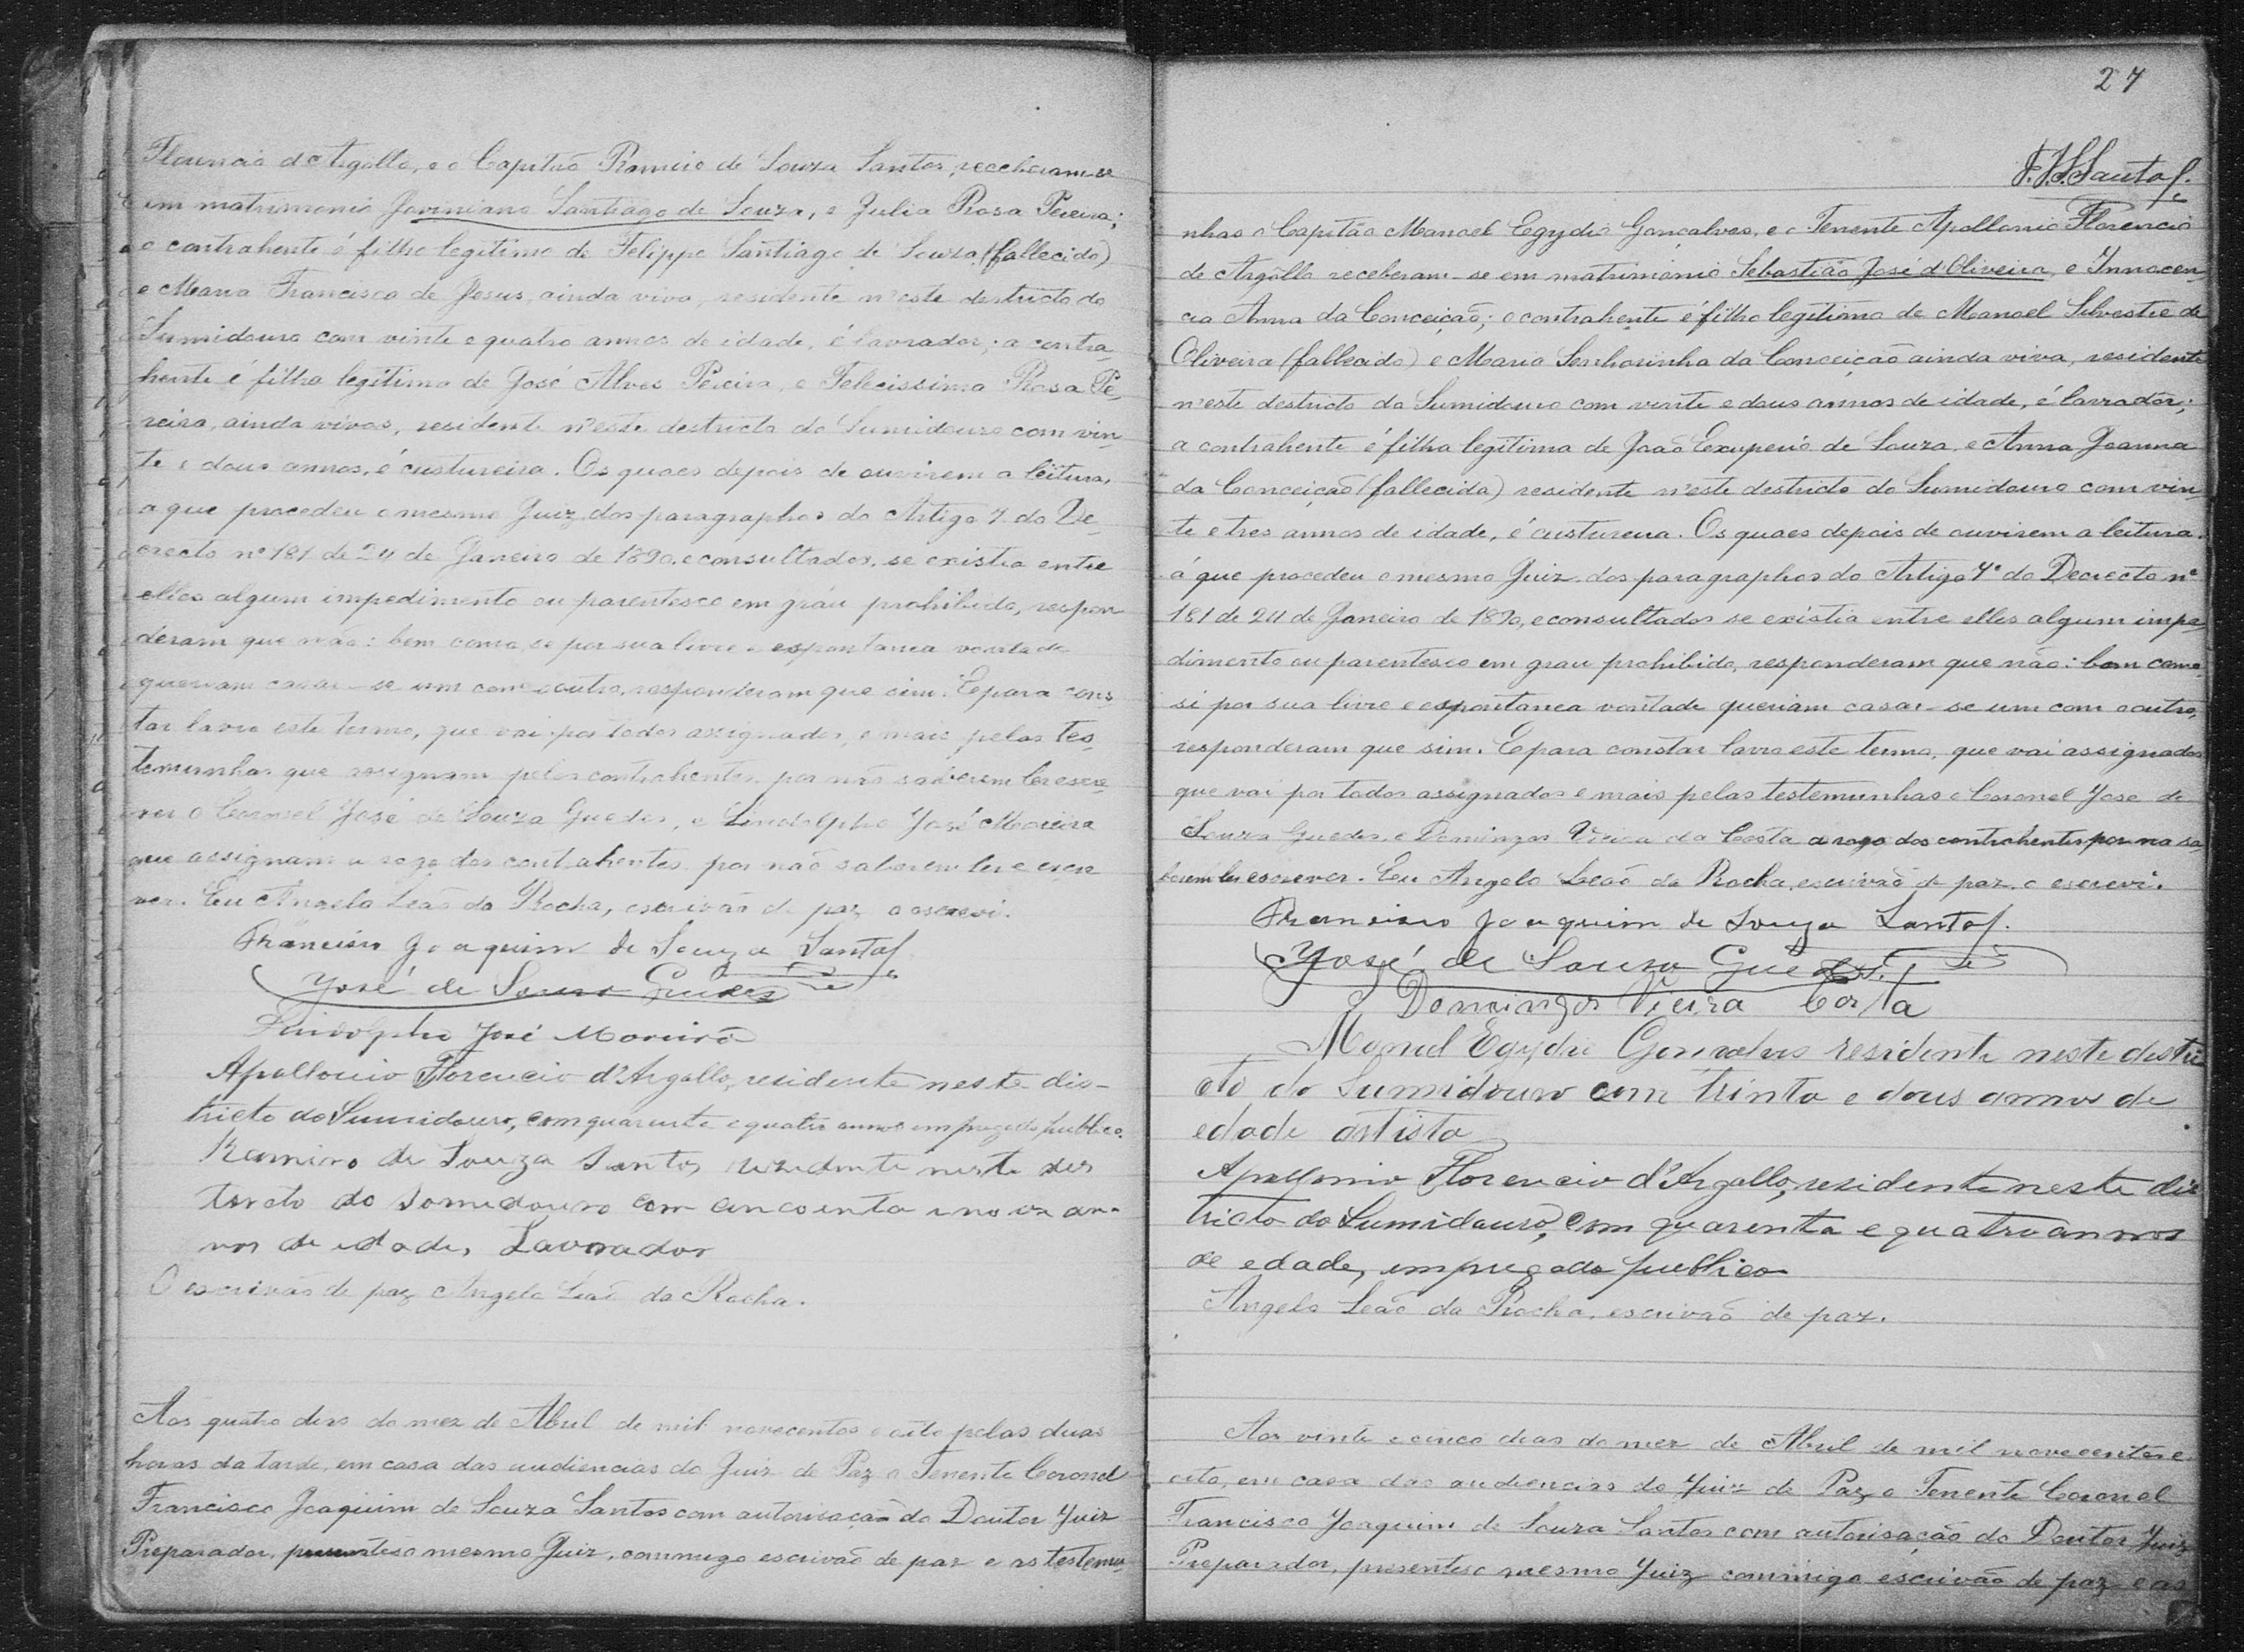 Florencio d'Argollo, e o Capitão Ramiro de Souza Santos, receberam-se
em matrimonio Joviniano Santiago de Souza, e Julia Rosa Pereira;
o contrahente é filho legitimo de Felippe Santiago de Souza (fallecido)
e Maria Francisca de Jesus, ainda viva, residente n'este destricto do
Sumidouro com vinte e quatro annos de idade, é lavrador; a contra-
hente é filha legitima de José Alves Pereira, e Felecissima Rosa Pe-
reira, ainda vivos, residente n'este destricto do Sumidouro com vin-
te e dous annos, é custureira. Os quaes depois de ouvirem a leitura,
a que procedeu o mesmo Juiz dos paragraphos do Artigo 7 do De-
crecto nº 181 de 24 de Janeiro de 1890, e consultados, se existia entre
elles algum impedimento ou parentesco em gráu prohibido, respon-
deram que não: bem como, se por sua livre e espontanea vontade
queriam casar-se um com o outro, responderam que sim. E para cons-
tar lavro este termo, que vai por todos assignados, e mais pelas tes-
temunhas que assignam pelos contrahentes por não saberem ler escre-
ver o Coronel José de Souza Guedes, e Lindolpho José Moreira
que assignam a rogo dos contrahentes por não saberem ler e escre-
ver. Eu Angelo Leão da Rocha, escrivão de paz o escrevi.
Francisco Joaquim de Souza Santos
José de Souza Guedes
Lindolpho José Moreira
Apollonio Florencio d'Argollo, residente neste dis-
tricto do Sumidouro, com quarenta e quatro annos empregado publico.
Ramiro de Souza Santos, rezidente neste des
tircto do Somedouro com cincoenta e nove an-
nos de edade, Lavrador
O escrivão de paz Angelo Leão da Rocha.
Aos quatro dias do mez de Abril de mil novecentos e oito pelas duas
horas da tarde, em casa das audiencias do Juiz de Paz o Tenente Coronel
Francisco Joaquim de Souza Santos com autorisação do Doutor Juiz
Preparador, presentes o mesmo Juiz, commigo escrivão de paz e as testemu-
27
F.J.S.Santos.
nhas o Capitão Manoel Egydio Gonçalves, e o Tenente Apollonio Florencio
de Argollo receberam-se em matrimonio Sebastião José d'Oliveira, e Innocen-
cia Anna da Conceição; o contrahente é filho legitimo de Manoel Silvestre de
Oliveira (fallecido) e Maria Senhorinha da Conceição ainda viva, residente
n'este destricto do Sumidouro com vinte e dous annos de idade, é lavrador;
a contrahente é filha legitima de João Exuperio de Souza, e Anna Joanna
da Conceição (fallecida) residente n'este destricto do Sumidouro com vin-
te e tres annos de idade, é custureira. Os quaes depois de ouvirem a leitura.
á que procedeu o mesmo Juiz dos paragraphos do Artigo 7º do Decrecto nº
181 de 24 de Janeiro de 1890, e consultados se existia entre elles algum impe-
dimento ou parentesco em grau prohibido, responderam que não: bem como
si por sua livre e espontanea vontade queriam casar-se um com o outro,
responderam que sim. E para constar lavro este termo, que vai assignados
que vai por todos assignados e mais pelas testemunhas o Coronel José de
Souza Guedes, e Domingos Vieira da Costa a rogo dos contrahentes por na sa-
berem ler escrever. Eu Angelo Leão da Rocha, escrivão de paz, o escrevi.
Francisco Joaquim de Souza Santos.
José de Souza Guedes.
Domingos Vieira Costa
Manuel Egydio Gonçalves residente neste destri
cto do Sumidouro com trinta e dous annos de
edade artista
Apollonio Florencio d'Argollo, residente neste dis
tricto do Sumidouro, com quarenta e quatro annos
de edade, empregado publico
Angelo Leão da Rocha, escrivão de paz.
Aos vinte e cinco dias do mez de Abril de mil novecentos e
oito, em casa das audiencias do Juiz de Paz o Tenente Coronel
Francisco Joaquim de Souza Santos com autorisação do Doutor Juiz
Preparador, presentes o mesmo Juiz commigo escrivão de paz e as